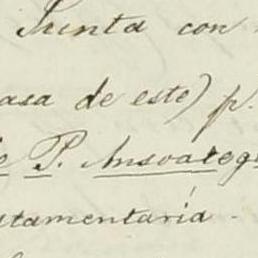 Junta con
asa de este) p.
P. Ansoateg
stamentaria